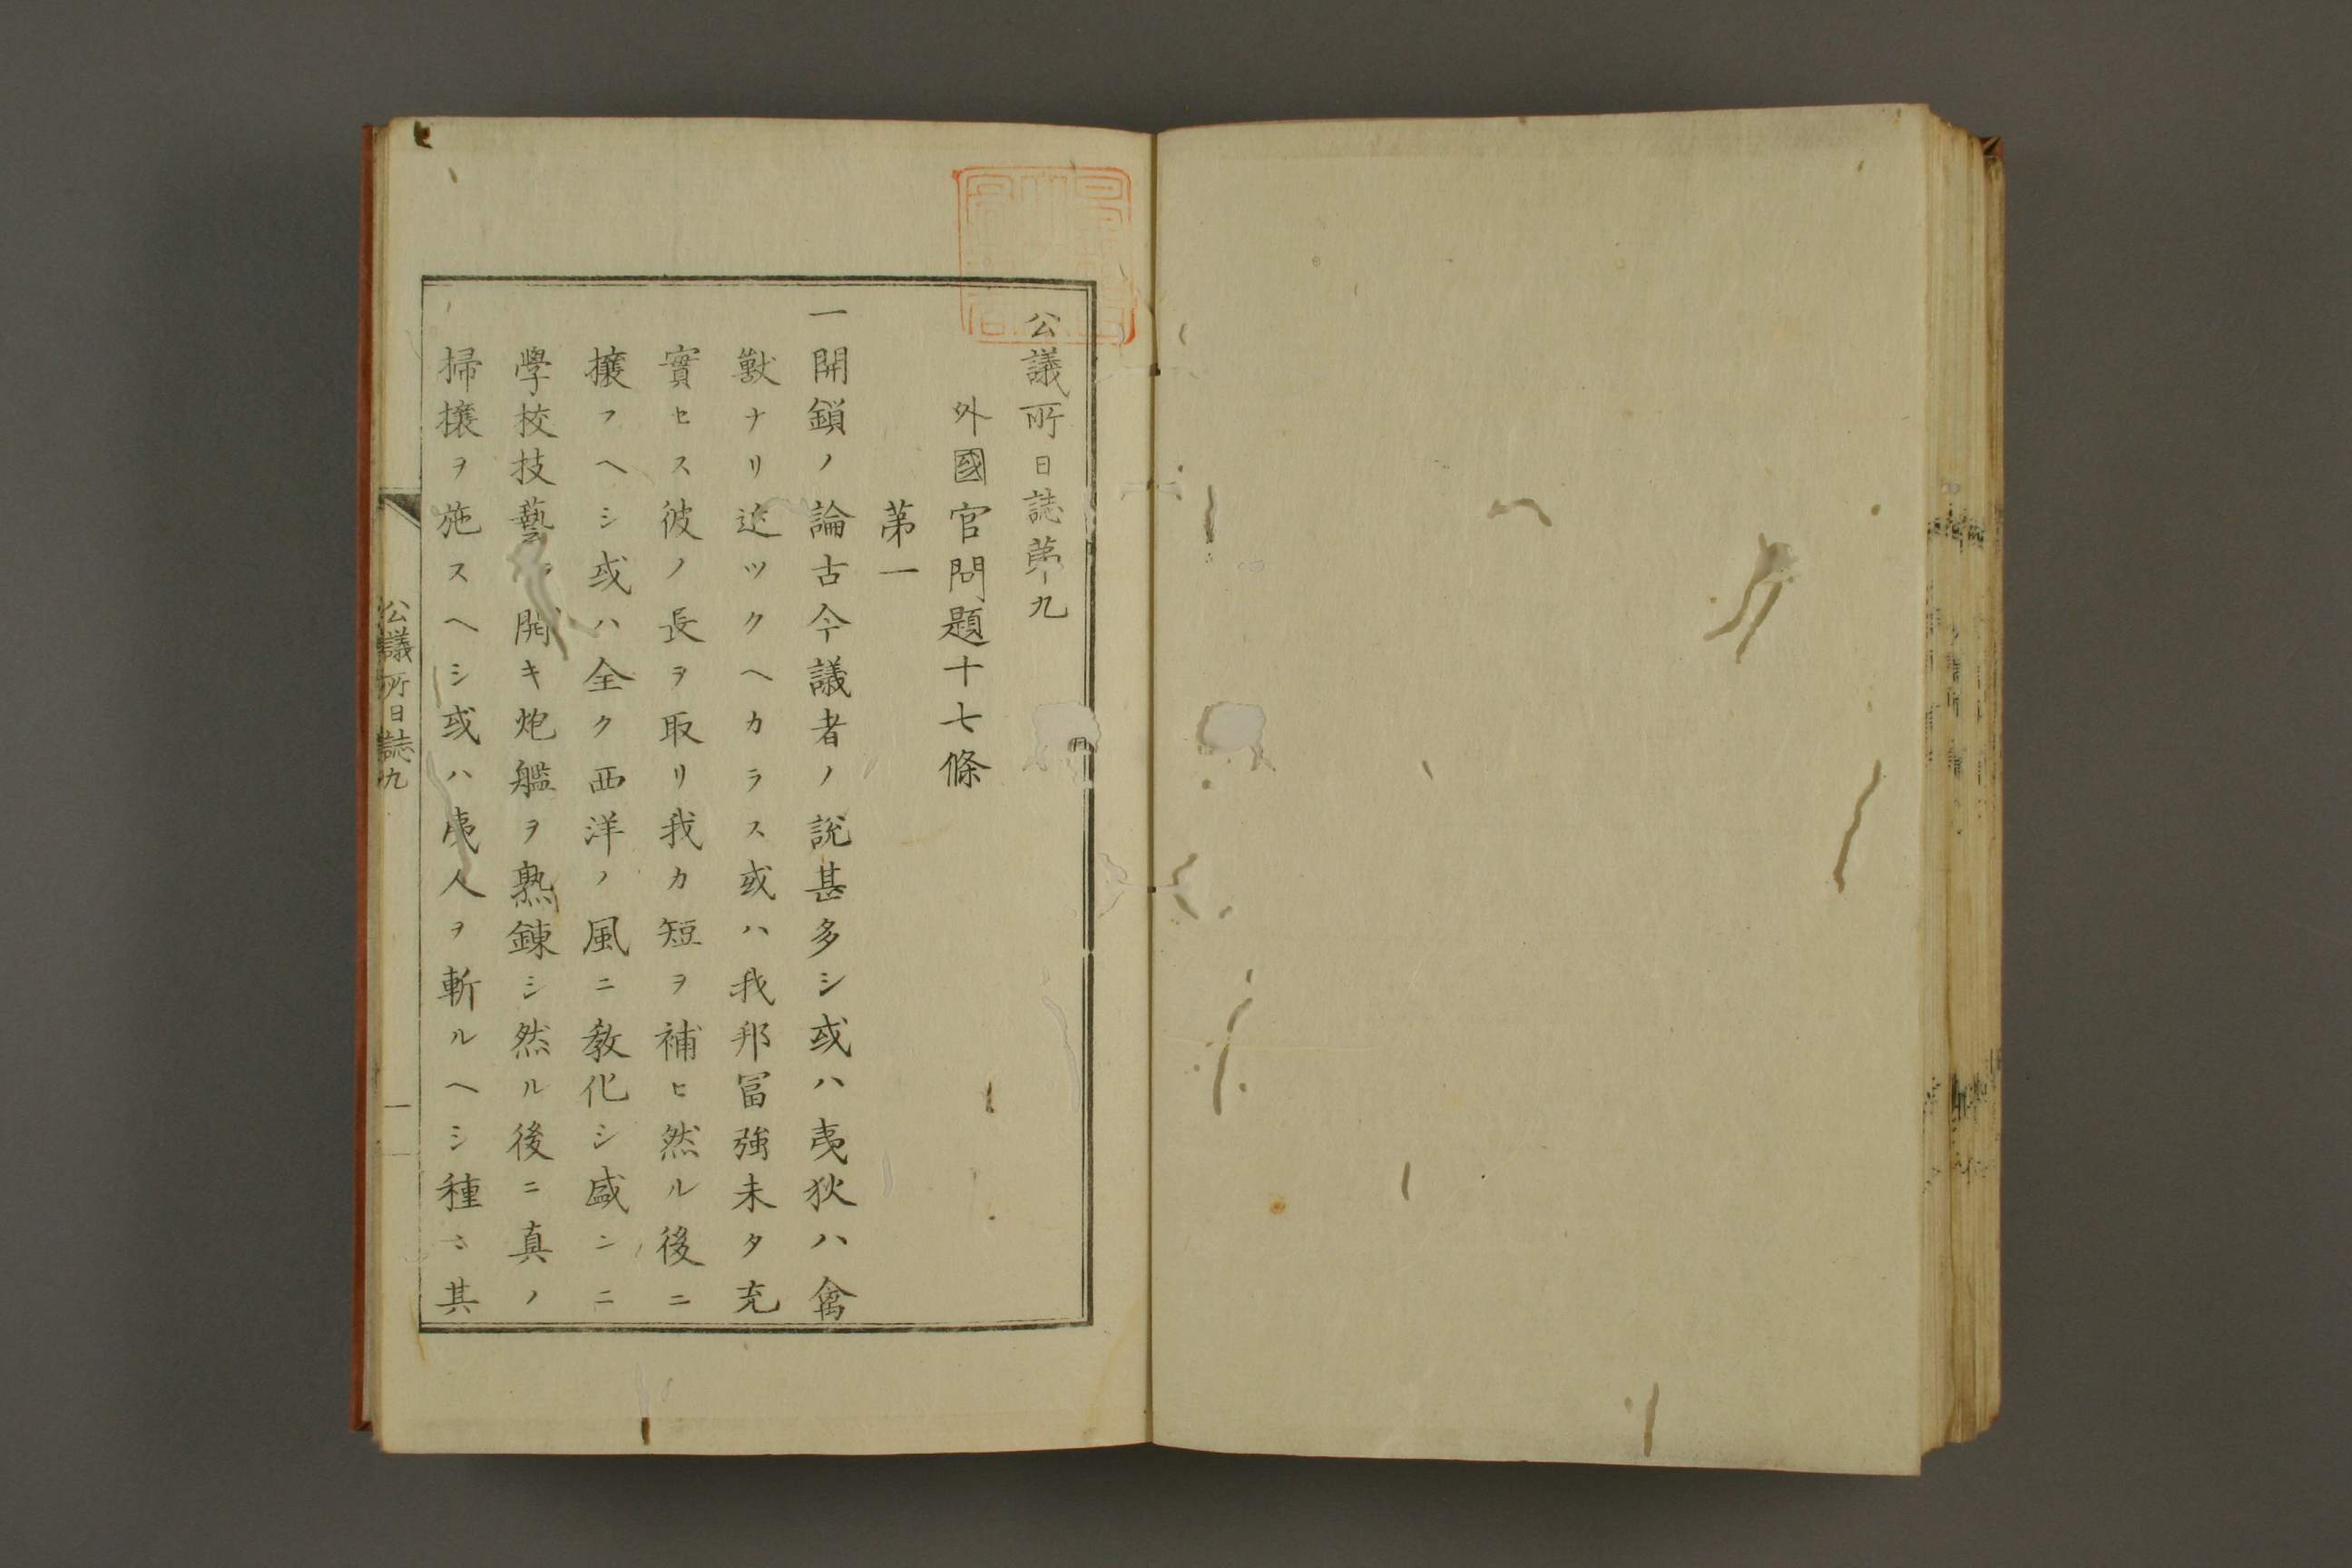 公議所日誌第九
外國官問題十七條
第一
一開鎖ノ論古今議者ノ説甚多シ或ハ夷狄ハ禽
獸ナリ近ツクヘカラス或ハ我邦冨強未タ充
實セス彼ノ長ヲ取リ我カ短ヲ補ヒ然ル後ニ
攘フヘシ或ハ全ク西洋ノ風ニ教化シ盛ンニ
學校技藝ヲ開キ炮艦ヲ熟錬シ然ル後ニ真ノ
掃攘ヲ施スヘシ或ハ夷人ヲ斬ルヘシ種々其
公議所日誌九
一